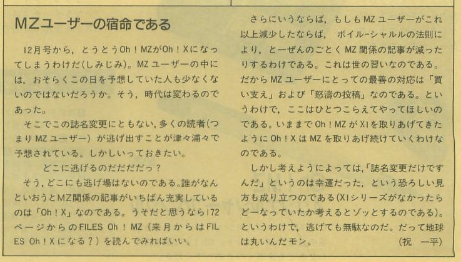 MZユーザーの宿命である
12月号から，とうとうOh！MZがOh！Xになっ
てしまうわけだ(しみじみ)。MZユーザーの中に
は，おそらくこの日を予想していた人も少なくな
いのではないだろうか。そう，時代は変わるので
あった。
そこでこの誌名変更にともない，多くの読者(つ
まりMZユーザー)が逃げ出すことが津々浦々で
予想されている。しかしいっておきたい。
どこに逃げるのだだだだっ？
そう，どこにも逃げ場はないのである。誰がなん
といおうとMZ関係の記事がいちばん充実している
のは「Oh！X」なのである。うそだと思うなら172
ページからのFILES Oh！MZ(来月からはFIL
ES Oh！Xになる？)を読んでみればいい。
さらにいうならば，もしもMZユーザーがこれ
以上減少したならば，ボイル-シャルルの法則
により，とーぜんのごとくMZ関係の記事が減った
りするわけである。これは世の習いなのである。
だからMZユーザーにとっての最善の対応は「買
い支え」および「怒濤の投稿」なのである。とい
うわけで，ここはひとつこらえてやってほしいの
である。いままでOh！MZがX1を取りあげてきた
ようにOh！XはMZを取りあげ続けていくわけな
のである。
しかし考えようによっては，「誌名変更だけです
んだ」というのは幸運だった，という恐ろしい見
方も成り立つのである(X1シリーズがなかったら
どーなっていたか考えるとゾッとするのである)。
というわけで，逃げても無駄なのだ。だって地球
は丸いんだモン。
(祝　一平)